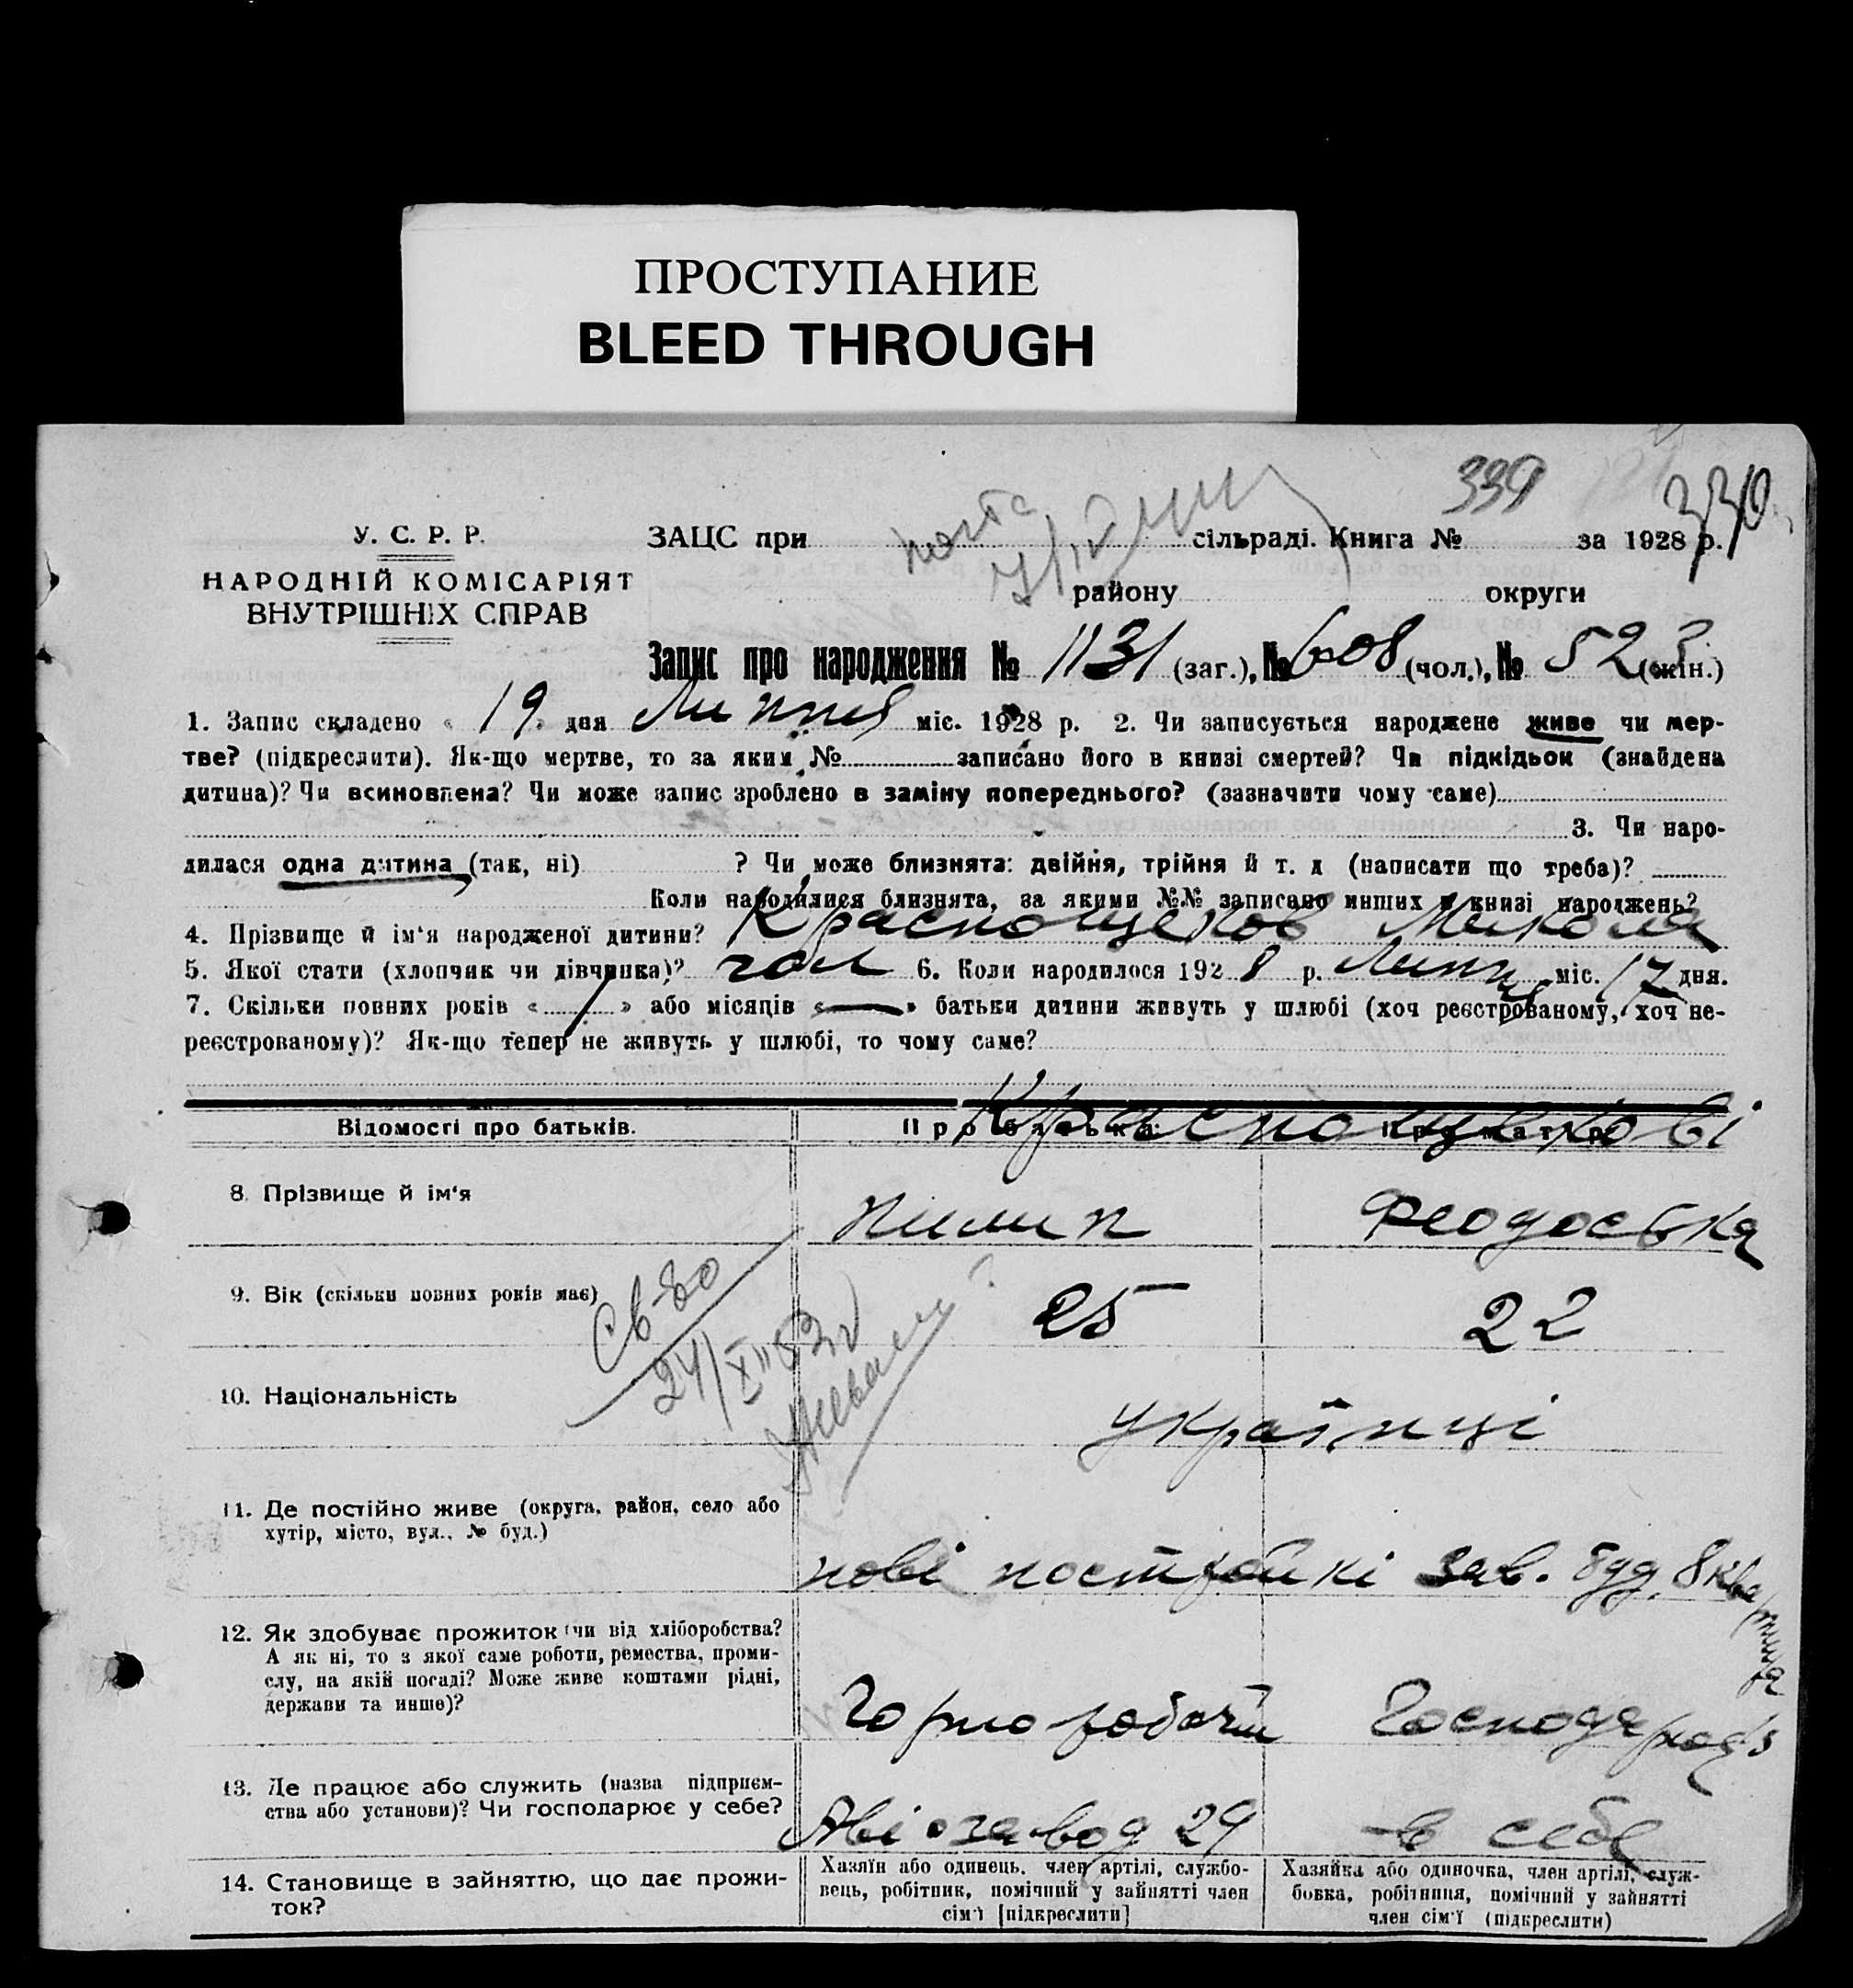 ПРОСТУПАНИЕ
BLEED THROUGH
339
330
У. С. Р. Р.
НАРОДНІЙ КОМІСАРІЯТ
ВНУТРІШНІХ СПРАВ
ЗАЦС при сільраді. Книга № за 1928 р.
району округи
Запис про народження № 1131 (заг.), № 608 (чол.), № 523 (жін.)
1. Запис складено « 19 » дня Липня міс. 1928 р. 2. Чи записується народжене живе чи мер-
тве? (підкреслити). Як-що мертве, то за яким № записано його в книзі смертей? Чи підкідьок (знайдена
дитина)? Чи всиновлена? Чи може запис зроблено в заміну попереднього? (зазначити чому саме)
3. Чи наро-
дилася одна дитина (так, ні) ? Чи може близнята: двійня, трійня й т. д (написати що треба)?
Коли народилися близнята, за якими №№ записано инших в книзі народжень?
4. Прізвище й ім'я народженої дитини? Краснощеков Микола
5. Якої стати (хлопчик чи дівчинка)? чол 6. Коли народилося 1928 р. Липня міс. 17 дня.
7. Скільки повних років « 1 » або місяців « — » батьки дитини живуть у шлюбі (хоч реєстрованому, хоч не-
реєстрованому)? Як-що тепер не живуть у шлюбі, то чому саме?
Відомості про батьків. Про батька: Про матір:
Краснощекові
8. Прізвище й ім'я Пилип Феодоська
9. Вік (скільки повних років має) 25 22
Св-во
24/XII 53
10. Національність українці
11. Де постійно живе (округа, район, село або
хутір, місто, вул., № буд.)
нові постройкі зав. буд. 8 квартира
12. Як здобуває прожиток (чи від хліборобства?
А як ні, то з якої саме роботи, ремества, проми-
слу, на якій посаді? Може живе коштами рідні,
держави та инше)?
Горно робочій
13. Де працює або служить (назва підприєм-
ства або установи)? Чи господарює у себе?
Авіозавод 29 в себе
14. Становище в зайняттю, що дає прожи-
ток?
Хазяїн або одинець, член артілі, службо-
вець, робітник, помічний у зайнятті член
сім'ї [підкреслити]
Хазяйка або одиночка, член артілі, служ-
бовка, робітниця, помічний у зайнятті
член сім'ї (підкреслити)